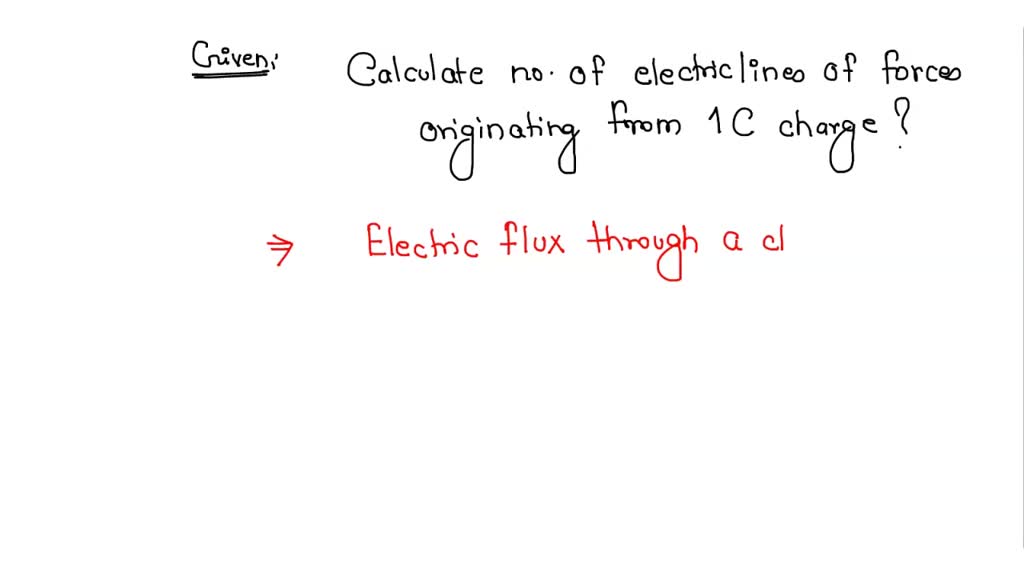 Given:
Calculate no. of electric lines of forces
originating from 1C charge ?
⇒ Electric flux through a cl